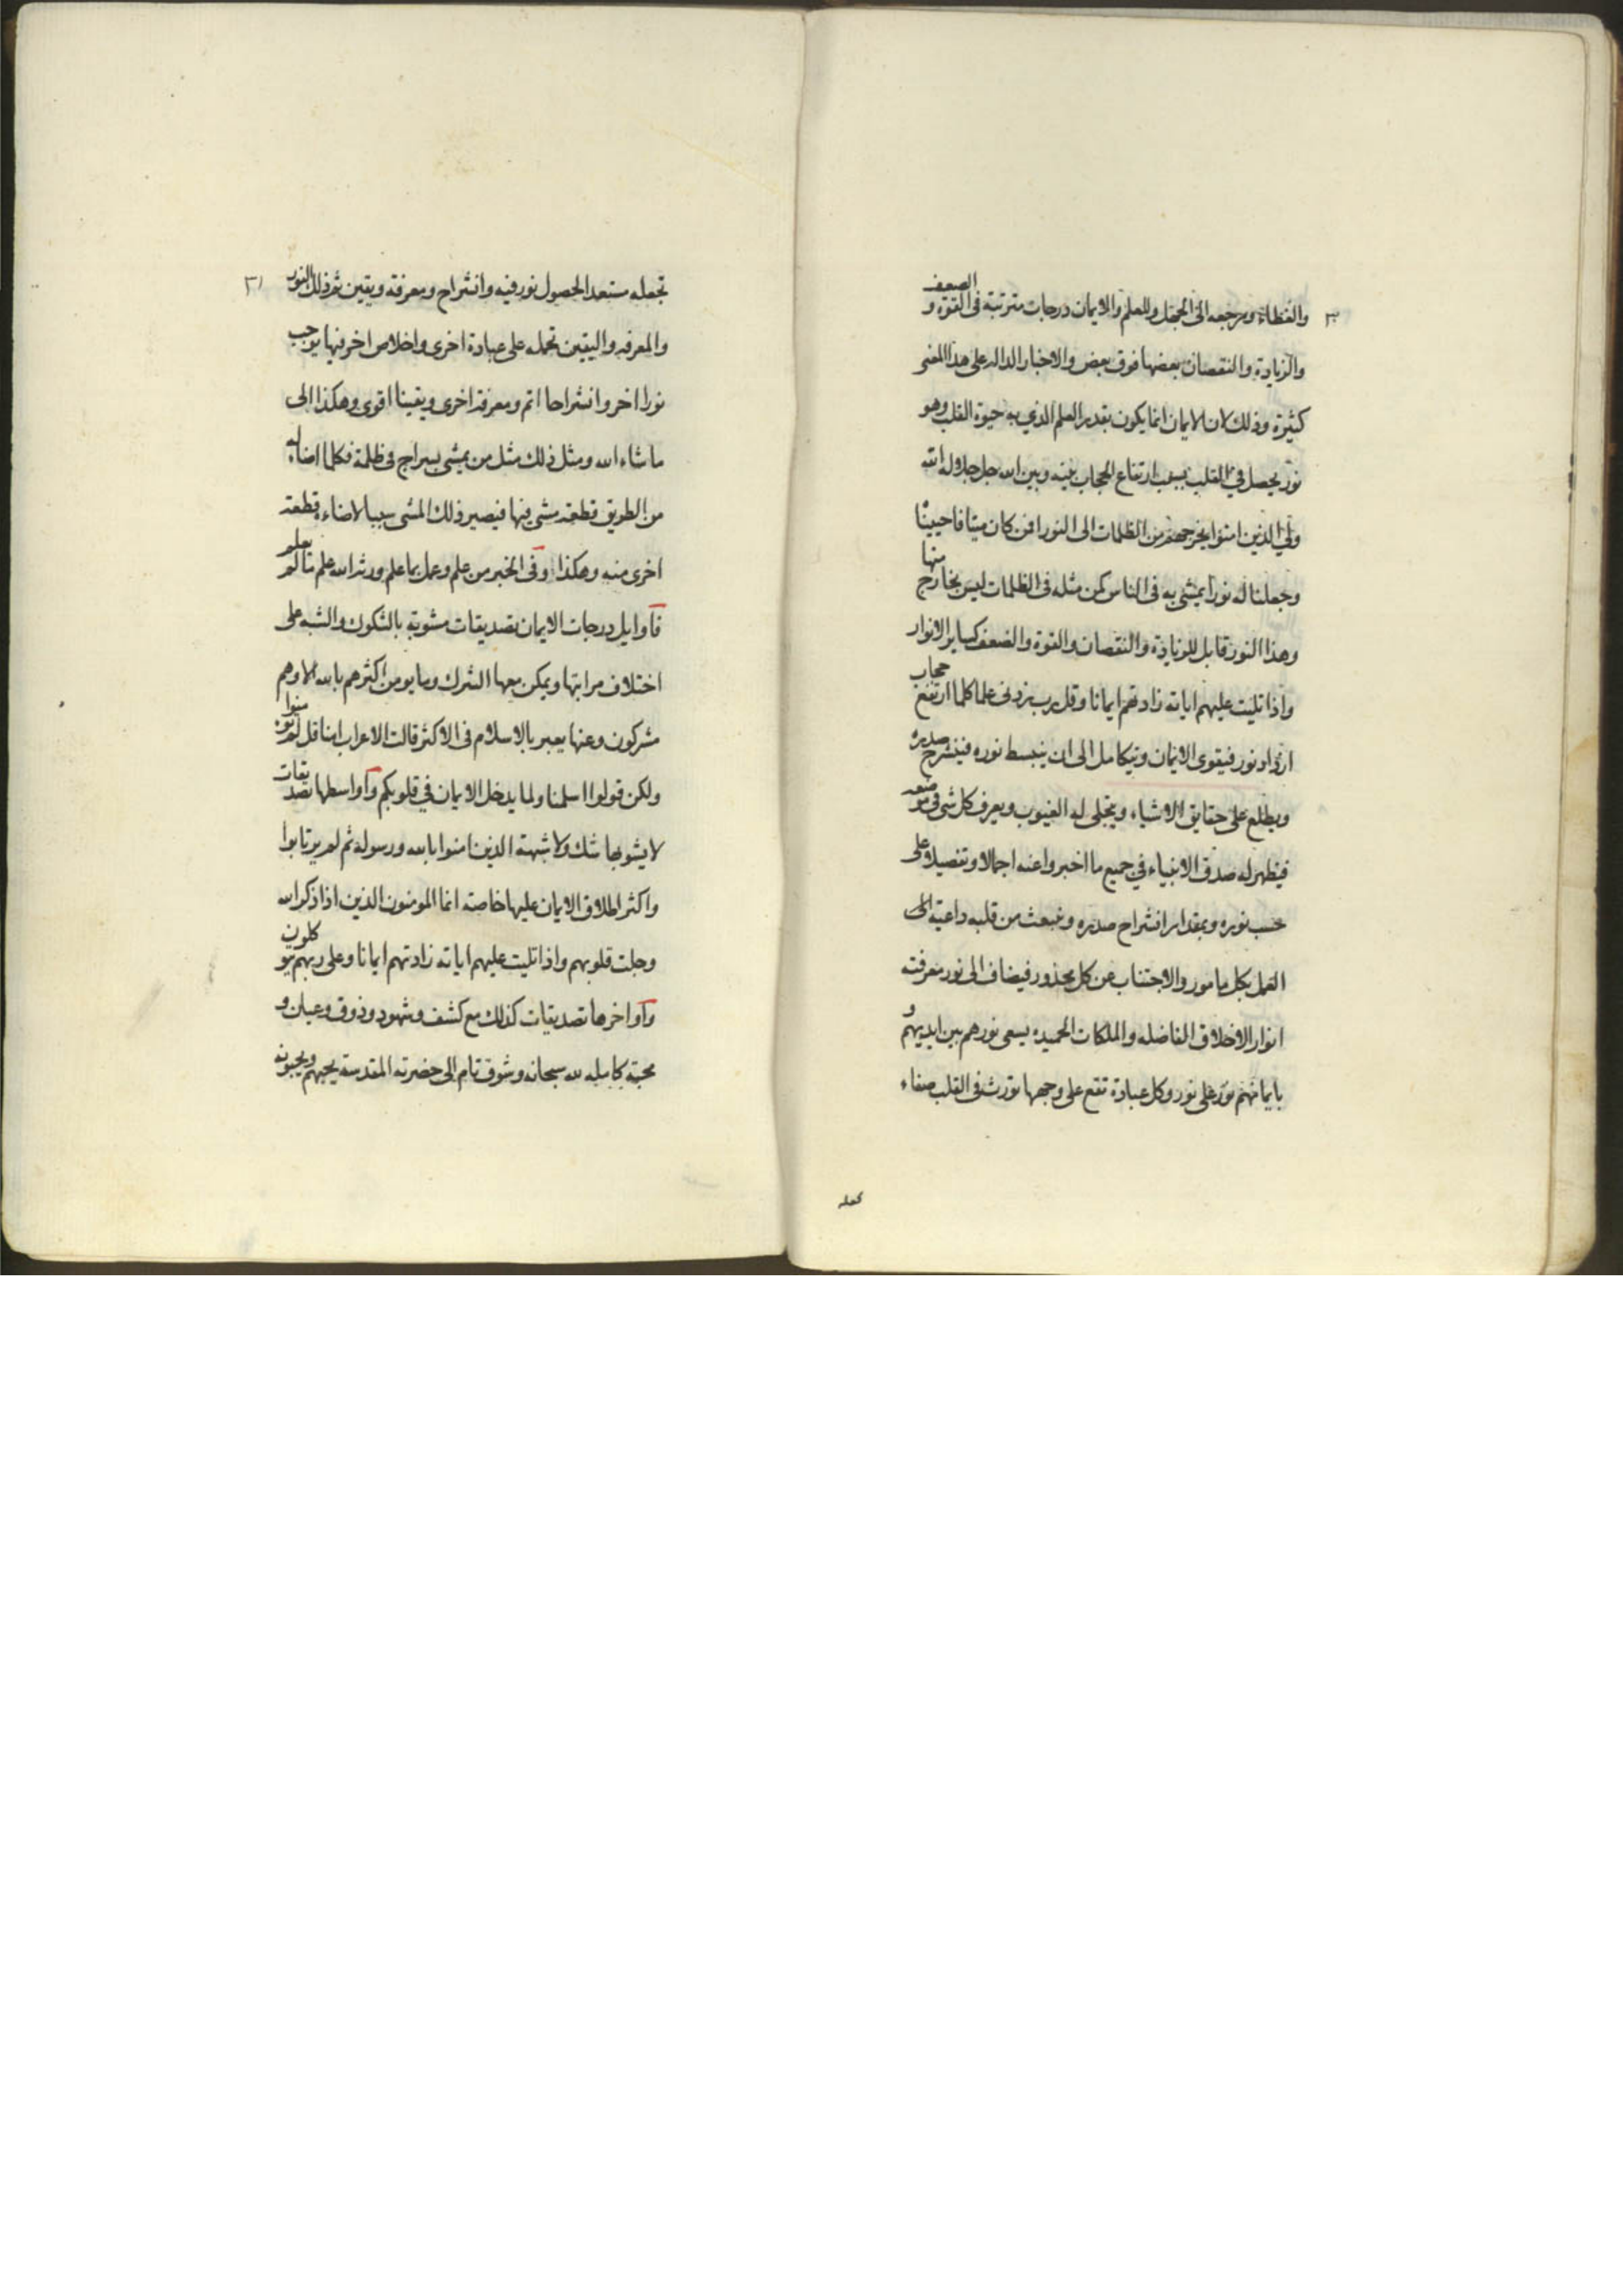 ٣٠
والغطاء ومرجعه الى الجهل وللعلم والايمان درجات مترتبة فى القوة و الضعف
والزيادة والنقصان بعضها فوق بعض والاخبار الداله على هذا المعنى
كثيرة وذلك لان الايمان انما يكون بقدر العلم الذي به حيوة القلب وهو
نور يحصل في القلب بسبب ارتفاع الحجاب بينه وبين الله جل جلاله الله
ولي الذين امنوا يخرجهم من الظلمات الى النور افمن كان ميتا فاحييناه
وجعلنا له نورا يمشي به فى الناس كمن مثله فى الظلمات ليس بخارج منها
وهذا النور قابل للزيادة والنقصان والقوة والضعف كساير الانوار
واذا تليت عليهم اياته زادتهم ايمانا وقل رب زدنى علما كلما ارتفع حجاب
ازداد نور فيقوى الايمان ويتكامل الى ان ينبسط نوره فينشرح صدره
ويطلع على حقايق الاشياء ويتجلى له الغيوب ويعرف كل شى فى موضعه
فيظهر له صدق الانبياء في جميع ما اخبروا عنه اجمالا وتفصيلا على
حسب نوره وبمقدار انشراح صدره وينبعث من قلبه داعية الى
العمل بكل مامور والاجتناب عن كل محذور فيضاف الى نور معرفته
انوار الاخلاق الفاضله والملكات الحميده يسعى نورهم بين ايديهم و
بايمانهم نور على نور وكل عبادة تقع على وجهها تورث فى القلب صفاء
تجعله
٣١
تجعله مستعدا لحصول نور فيه وانشراح ومعرفة ويقين ثم ذلك النور
والمعرفه واليقين تحمله على عبادة اخرى واخلاص اخر فيها يوجب
نورا اخر وانشراحا اتم ومعرفة اخرى ويقينا اقوى وهكذا الى
ما شاء الله ومثل ذلك مثل من يمشي بسراج فى ظلمة فكلما اضاء له
من الطريق قطعة مشى فيها فيصير ذلك المشى سببا لاضاءة قطعة
اخرى منه وهكذا وفى الخبر من علم وعمل بما علم ورثه الله علم ما لم يعلم
فاوايل درجات الايمان تصديقات مشوبة بالشكوك والشبه على
اختلاف مراتبها ويمكن معها الشرك وما يومن اكثرهم بالله الا وهم
مشركون وعنها يعبر بالاسلام فى الاكثر قالت الاعراب امنا قل لم تومنوا
ولكن قولوا اسلمنا ولما يدخل الايمان في قلوبكم واواسطها تصديقات
لا يشوبها شك ولا شبهة الذين امنوا بالله ورسوله ثم لم يرتابوا
واكثر اطلاق الايمان عليها خاصة انما المومنون الذين اذا ذكر الله
وجلت قلوبهم واذا تليت عليهم اياته زادتهم ايمانا وعلى ربهم يتوكلون
واواخرها تصديقات كذلك مع كشف وشهود وذوق وعيان و
محبة كامله لله سبحانه وشوق تام الى حضرته المقدسة يحبهم ويحبونه